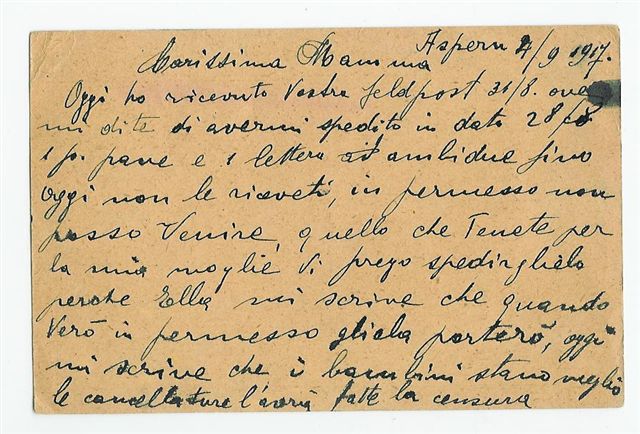 Aspern 4/9 1917.
Carissima Mamma
Oggi ho ricevuto Vostra feldpost 31/8. ove
mi dite di avermi spedito in data 28/8
1 p. pane e 1 lettera ambidue fino
oggi non le riceveti, in permesso non
posso Venire, quello che Tenete per
la mia moglie Vi prego spedirglielo
perche Ella mi scrive che quando
Verò in permesso gliela porterò, oggi
mi scrive che i bambini stano meglio
le cancellature l'avrà fatte la censura